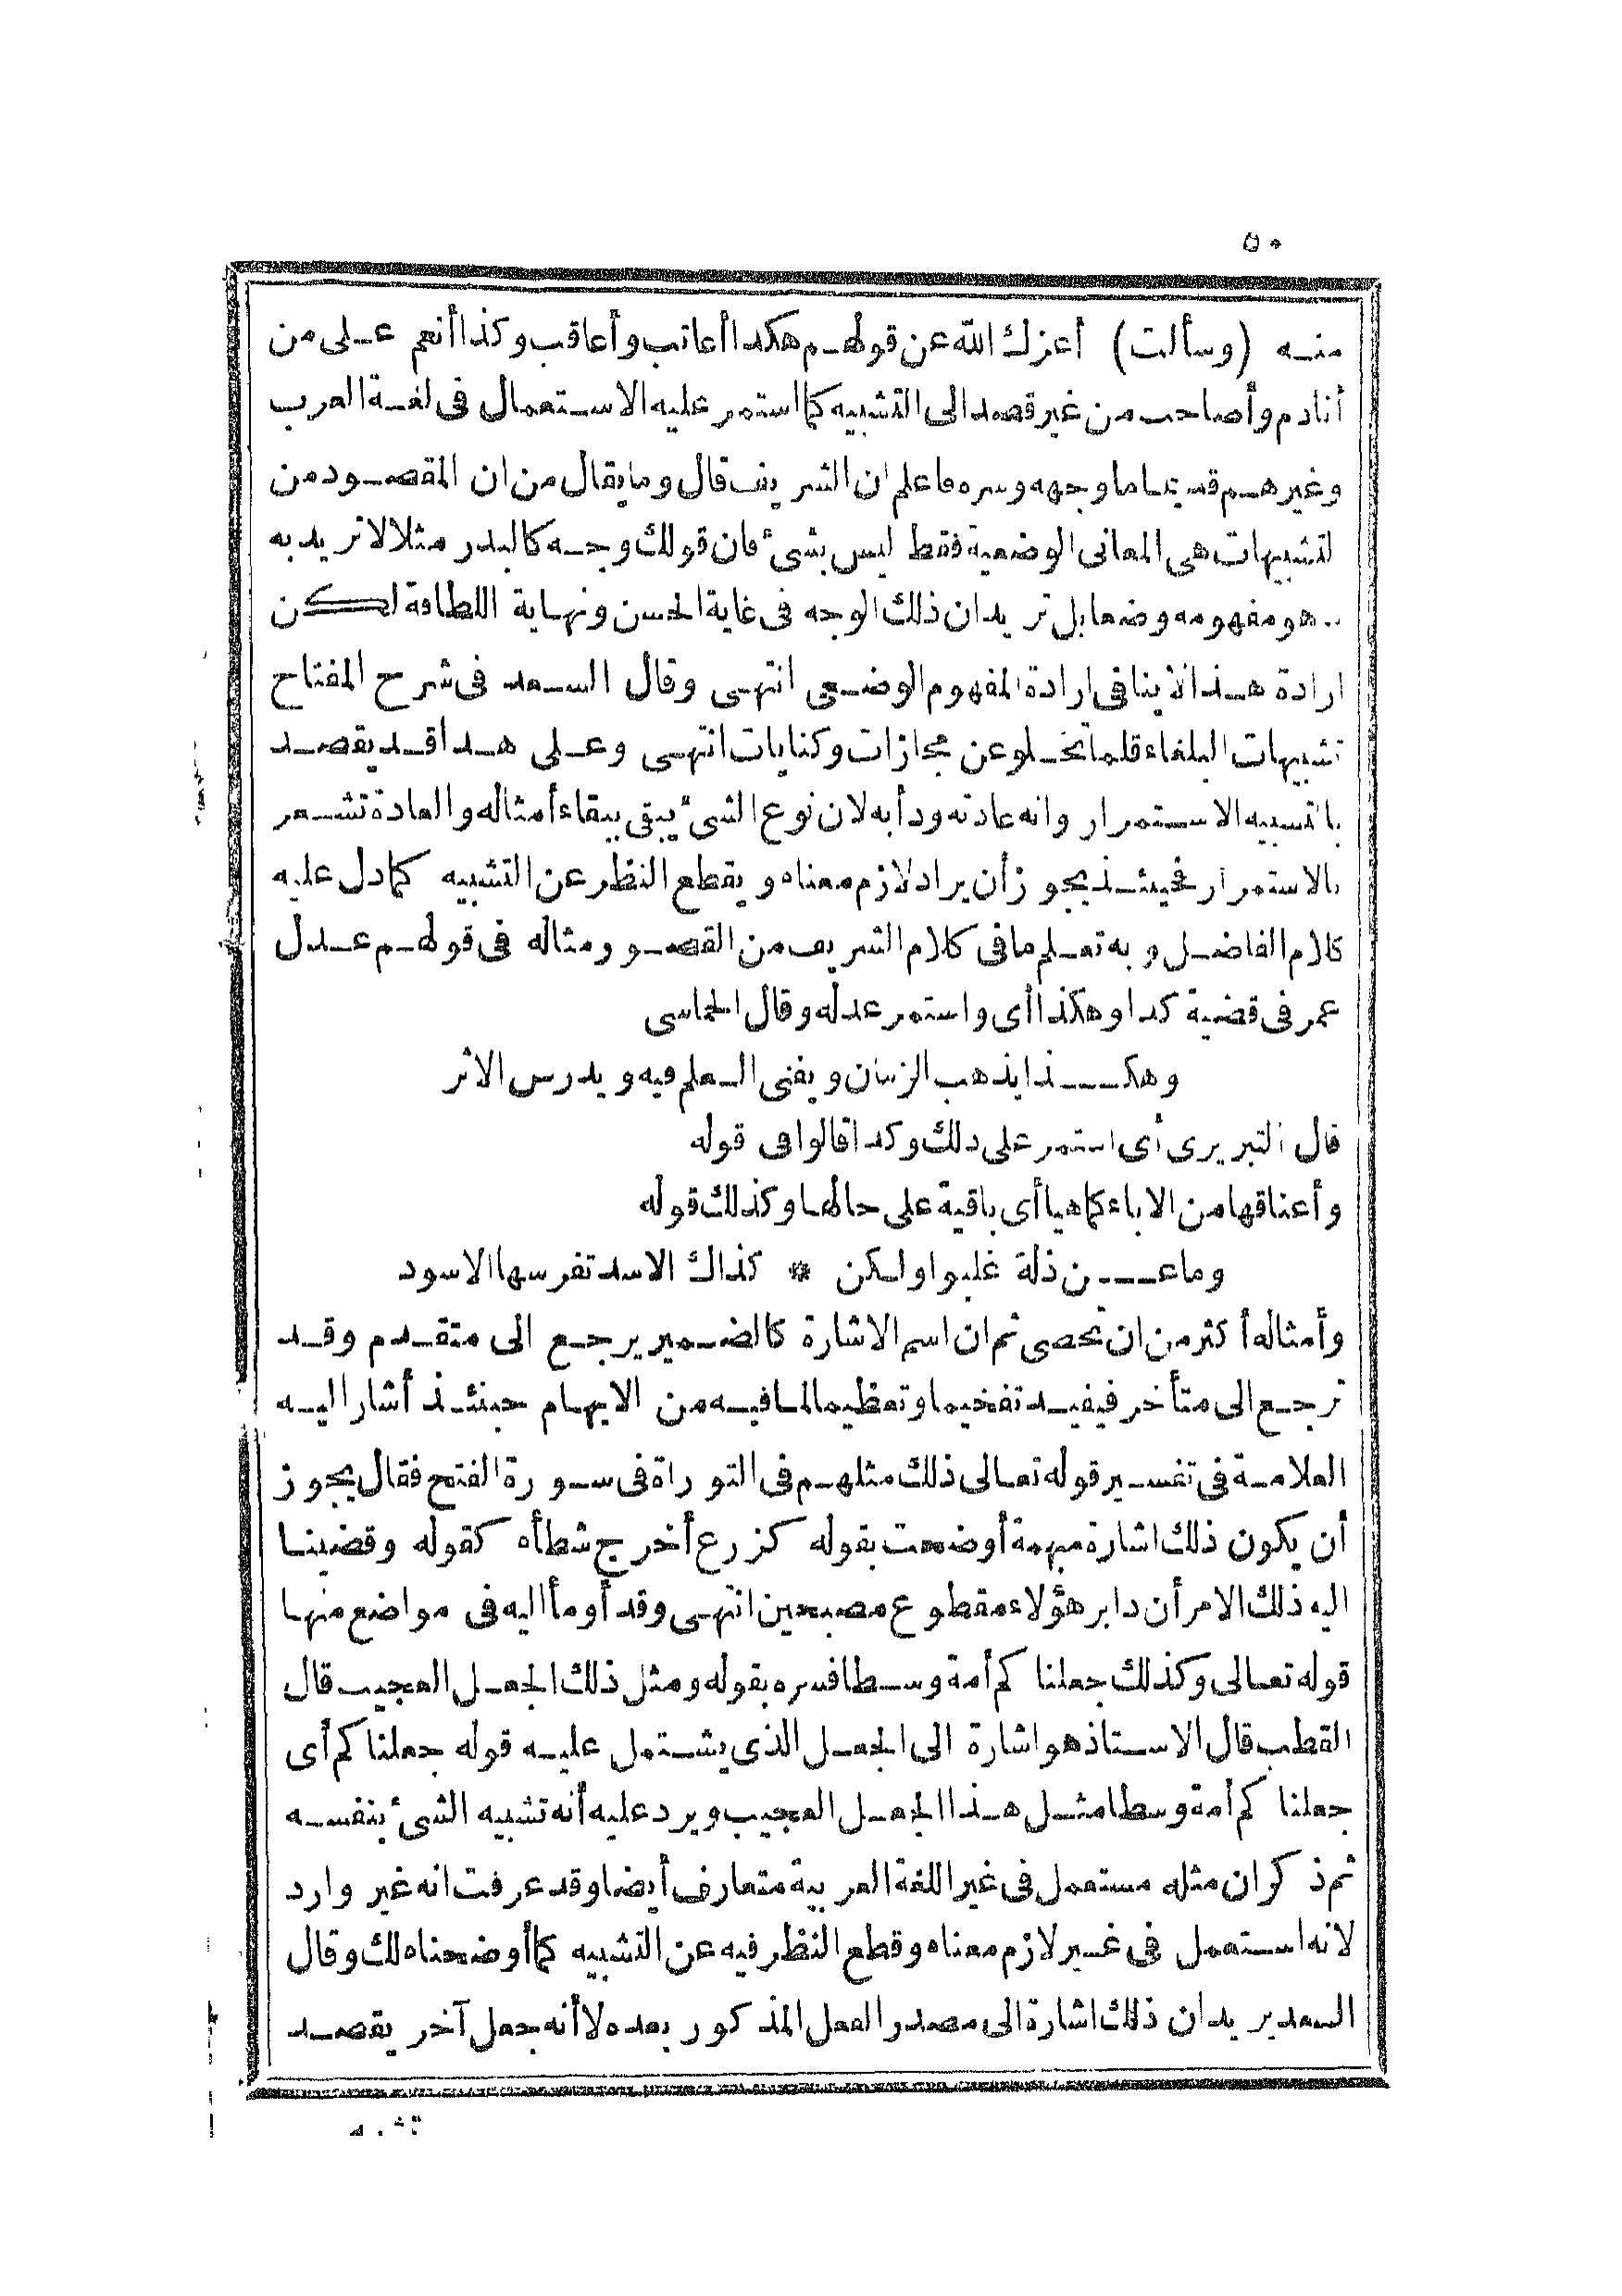 ٥٠
منه (وسألت) أعزك الله عن قولهم هكذا أعاتب وأعاقب وكذا أنعم على من
أنادم وأصاحب من غير قصد الى التشبيه كما استمر عليه الاستعمال فى لغة العرب
وغيرهم قديما ما وجهه وسره فاعلم ان الشريف قال وما يقال من ان المقصود من
التشبيهات هى المعانى الوضعية فقط ليس بشئ فان قولك وجه كالبدر مثلا لا تريد به
هو مفهومه وضعا بل تريد ان ذلك الوجه فى غاية الحسن ونهاية اللطافة لكن
ارادة هذا لا ينافى ارادة المفهوم الوضعى انتهى وقال السعد فى شرح المفتاح
تشبيهات البلغاء قلما تخلو عن مجازات وكنايات انتهى وعلى هذا قد يقصد
بالتشبيه الاستمرار وانه عادته ودأبه لان نوع الشئ يبقى ببقاء أمثاله والعادة تشعر
بالاستمرار فحينئذ يجوز أن يراد لازم معناه ويقطع النظر عن التشبيه كما دل عليه
كلام الفاضل وبه تعلم ما فى كلام الشريف من القصو ومثاله فى قولهم عدل
عمر فى قضية كذا وهكذا أى واستمر عدله وقال الحماسى
وهكذا يذهب الزمان ويفنى العلم فيه ويدرس الاثر
قال التبريرى أى استمر على ذلك وكذا قالوا فى قوله
وأعناقها من الاباء كما هيا أى باقية على حالها وكذلك قوله
وما عن ذلة غلبوا ولكن * كذاك الاسد تفرسها الاسود
وأمثاله أكثر من ان تحصى ثم ان اسم الاشارة كالضمير يرجع الى متقدم وقد
ترجع الى متأخر فيفيد تفخيما وتعظيما لما فيه من الايهام حينئذ أشار اليه
العلامة فى تفسير قوله تعالى ذلك مثلهم فى التوراة فى سورة الفتح فقال يجوز
أن يكون ذلك اشارة مبهمة أوضحت بقوله كزرع أخرج شطأه كقوله وقضينا
اليه ذلك الامر أن دابر هؤلاء مقطوع مصبحين انتهى وقد أومأ اليه فى مواضع منها
قوله تعالى وكذلك جعلناكم أمة وسطا فسره بقوله ومثل ذلك الجعل العجيب قال
القطب قال الاستاذ هو اشارة الى الجعل الذى يشتمل عليه قوله جعلناكم أى
جعلناكم أمة وسطا مثل هذا الجعل العجيب ويرد عليه أنه تشبيه الشئ بنفسه
ثم ذكر ان مثله مستعمل فى غير اللغة العربية متعارف أيضا وقد عرفت انه غير وارد
لانه استعمل فى غير لازم معناه وقطع النظر فيه عن التشبيه كما أوضحناه لك وقال
السعد يريد ان ذلك اشارة الى مصدر الفعل المذكور بعده لا أنه جعل آخر يقصد